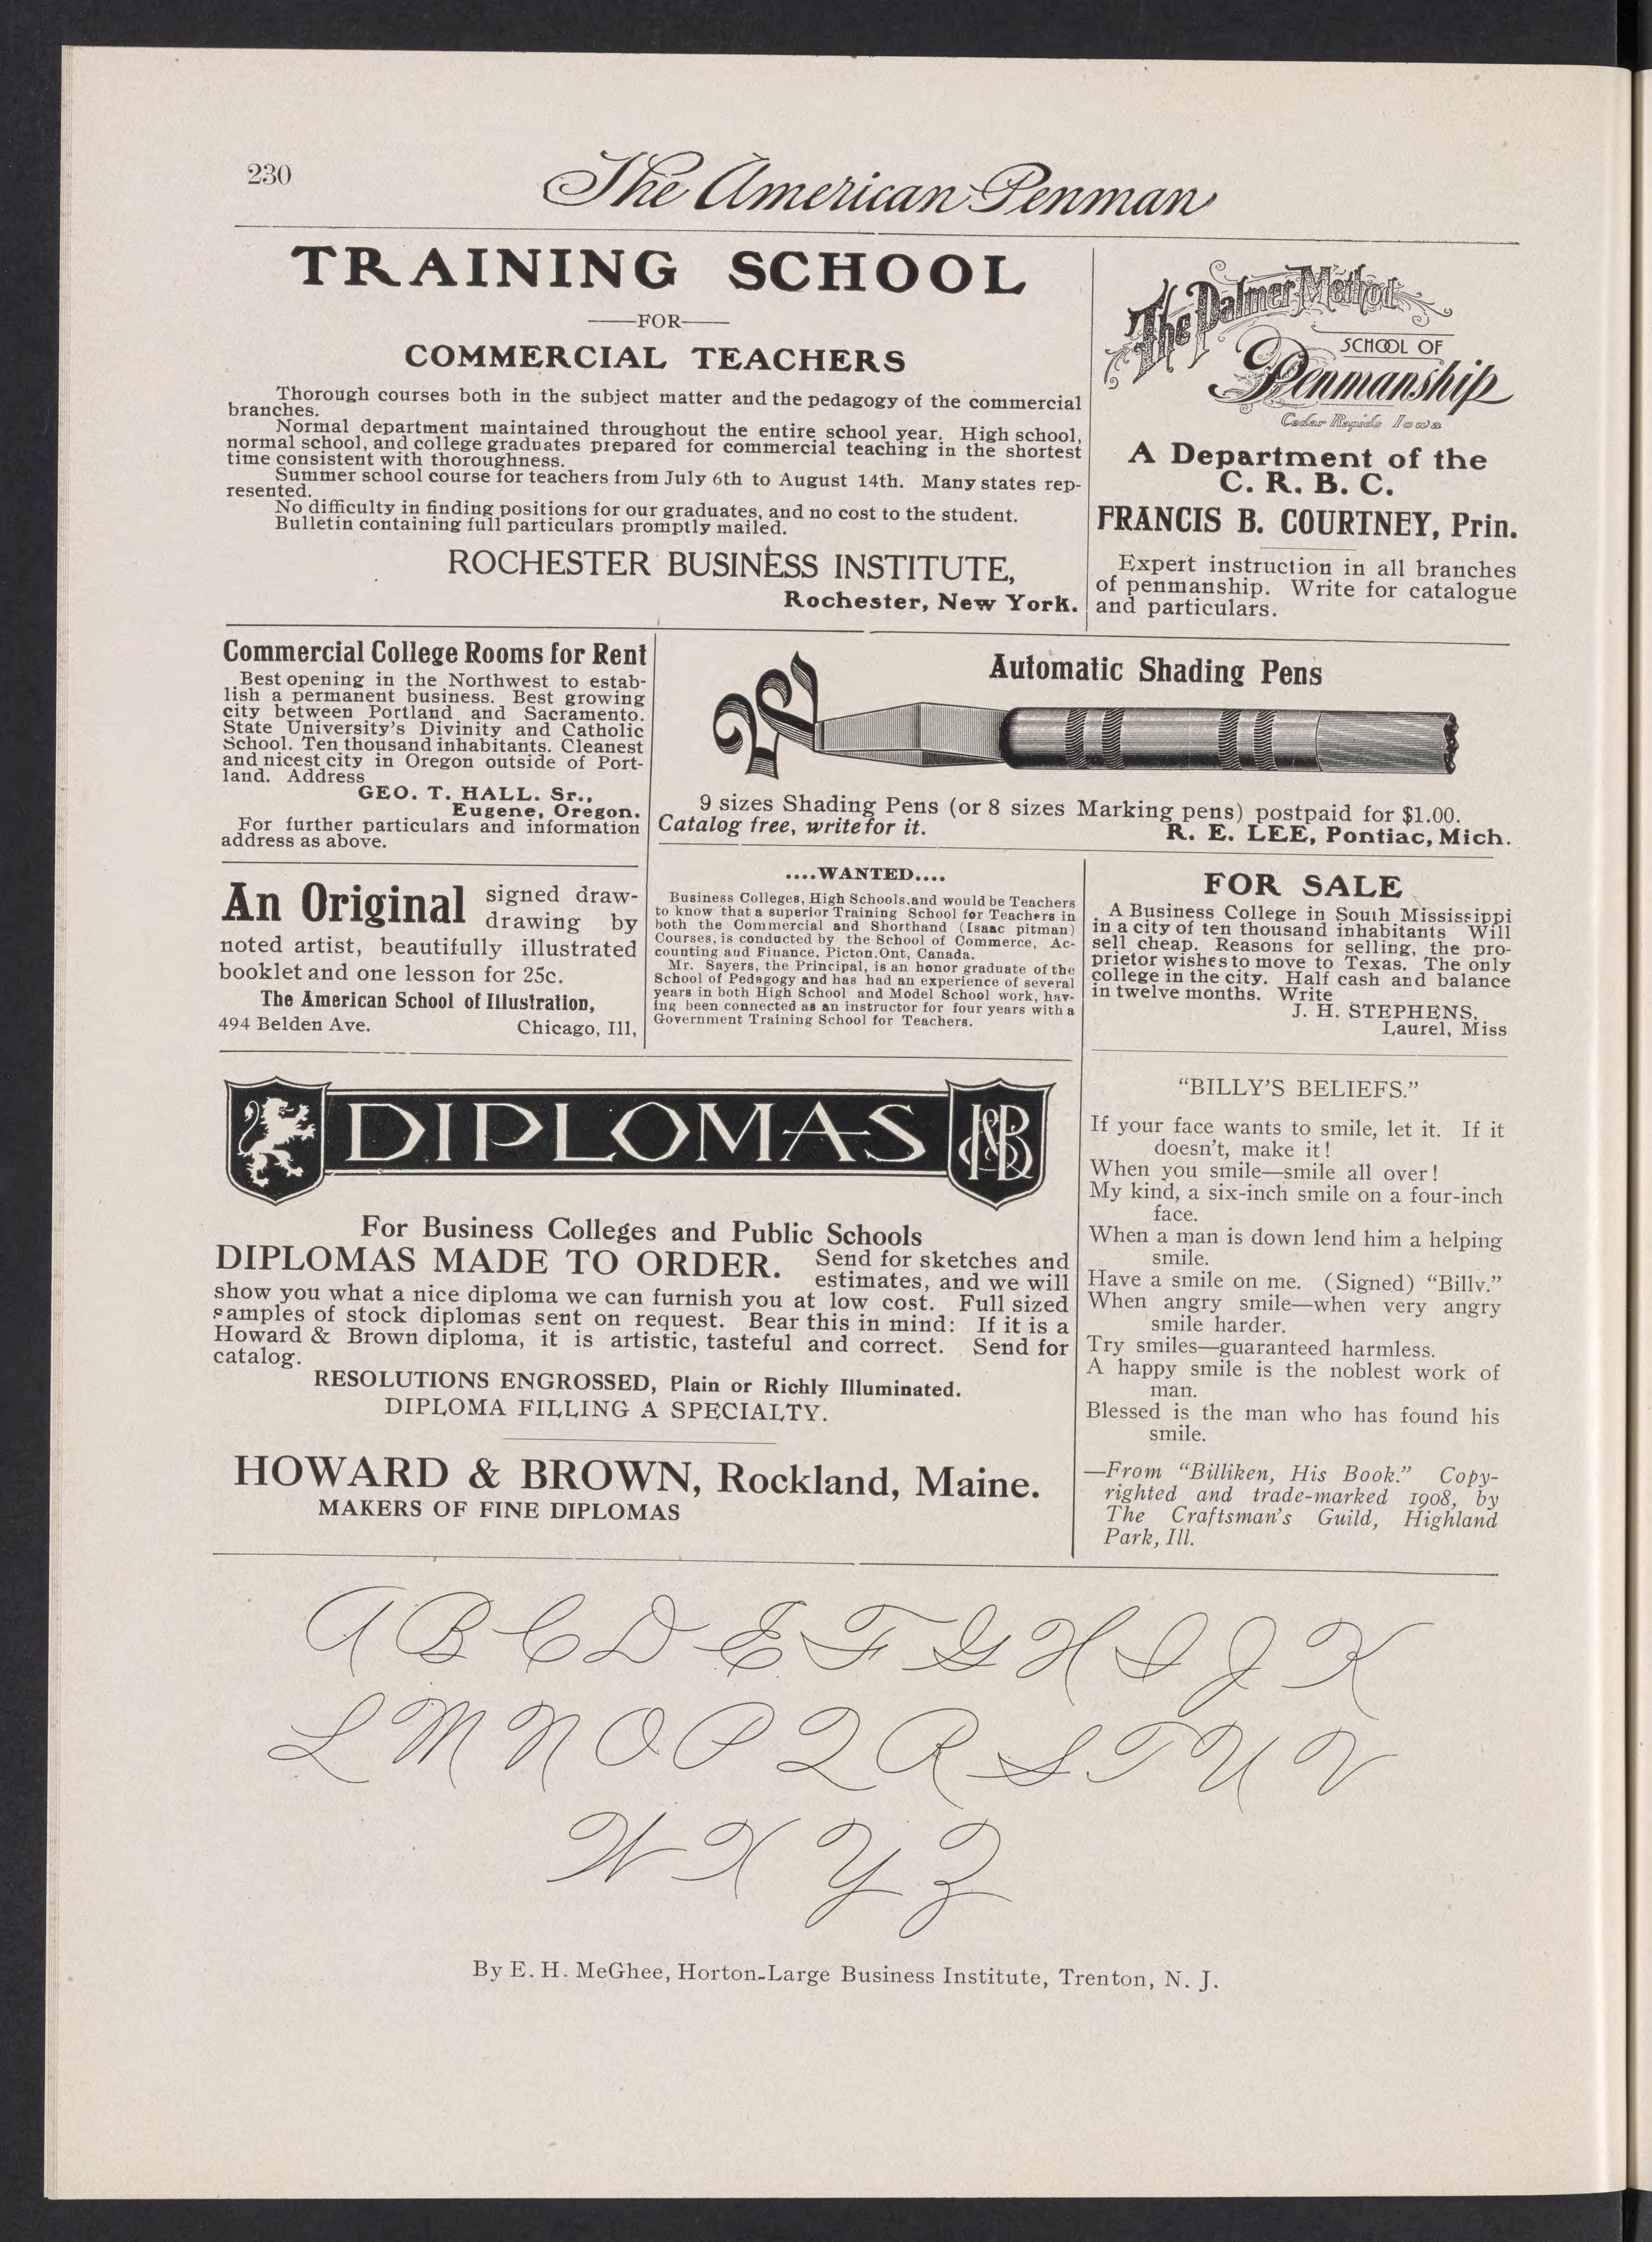 230
The American Penman
TRAINING SCHOOL
FOR
COMMERCIAL TEACHERS
Thorough courses both in the subject matter and the pedagogy of the commercial
branches.
Normal department maintained throughout the entire school year. High school,
normal school, and college graduates prepared for commercial teaching in the shortest
time consistent with thoroughness.
Summer school course for teachers from July 6th to August 14th. Many states rep-
resented.
No difficulty in finding positions for our graduates, and no cost to the student.
Bulletin containing full particulars promptly mailed.
ROCHESTER BUSINESS INSTITUTE,
Rochester, New York.
The Palmer Method
SCHOOL OF
Penmanship
Cedar Rapids Iowa
A Department of the
C. R. B. C.
FRANCIS B. COURTNEY, Prin.
Expert instruction in all branches
of penmanship. Write for catalogue
and particulars.
Commercial College Rooms for Rent
Best opening in the Northwest to estab-
lish a permanent business. Best growing
city between Portland and Sacramento.
State University's Divinity and Catholic
School. Ten thousand inhabitants. Cleanest
and nicest city in Oregon outside of Port-
land. Address
GEO. T. HALL. Sr.,
Eugene, Oregon.
For further particulars and information
address as above.
Automatic Shading Pens
9 sizes Shading Pens (or 8 sizes Marking pens) postpaid for $1.00.
Catalog free, write for it.
R. E. LEE, Pontiac, Mich.
An Original signed draw-
drawing by
noted artist, beautifully illustrated
booklet and one lesson for 25c.
The American School of Illustration,
494 Belden Ave. Chicago, Ill,
....WANTED....
Business Colleges, High Schools.and would be Teachers
to know that a superior Training School for Teachers in
both the Commercial and Shorthand (Isaac pitman)
Courses, is conducted by the School of Commerce, Ac-
counting aud Finance, Picton.Ont, Canada.
Mr. Sayers, the Principal, is an honor graduate of the
School of Pedagogy and has had an experience of several
years in both High School and Model School work, hav-
ing been connected as an instructor for four years with a
Government Training School for Teachers.
FOR SALE
A Business College in South Mississippi
in a city of ten thousand inhabitants Will
sell cheap. Reasons for selling, the pro-
prietor wishes to move to Texas. The only
college in the city. Half cash and balance
in twelve months. Write
J. H. STEPHENS,
Laurel, Miss
DIPLOMAS
H&B
For Business Colleges and Public Schools
DIPLOMAS MADE TO ORDER. Send for sketches and
estimates, and we will
show you what a nice diploma we can furnish you at low cost. Full sized
samples of stock diplomas sent on request. Bear this in mind: If it is a
Howard & Brown diploma, it is artistic, tasteful and correct. Send for
catalog.
RESOLUTIONS ENGROSSED, Plain or Richly Illuminated.
DIPLOMA FILLING A SPECIALTY.
HOWARD & BROWN, Rockland, Maine.
MAKERS OF FINE DIPLOMAS
"BILLY'S BELIEFS."
If your face wants to smile, let it. If it
doesn't, make it!
When you smile—smile all over!
My kind, a six-inch smile on a four-inch
face.
When a man is down lend him a helping
smile.
Have a smile on me. (Signed) "Billy."
When angry smile—when very angry
smile harder.
Try smiles—guaranteed harmless.
A happy smile is the noblest work of
man.
Blessed is the man who has found his
smile.
—From "Billiken, His Book." Copy-
righted and trade-marked 1908, by
The Craftsman's Guild, Highland
Park, Ill.
A B C D E F G H I J K
L M N O P Q R S T U V
W X Y Z
By E. H. McGhee, Horton-Large Business Institute, Trenton, N. J.